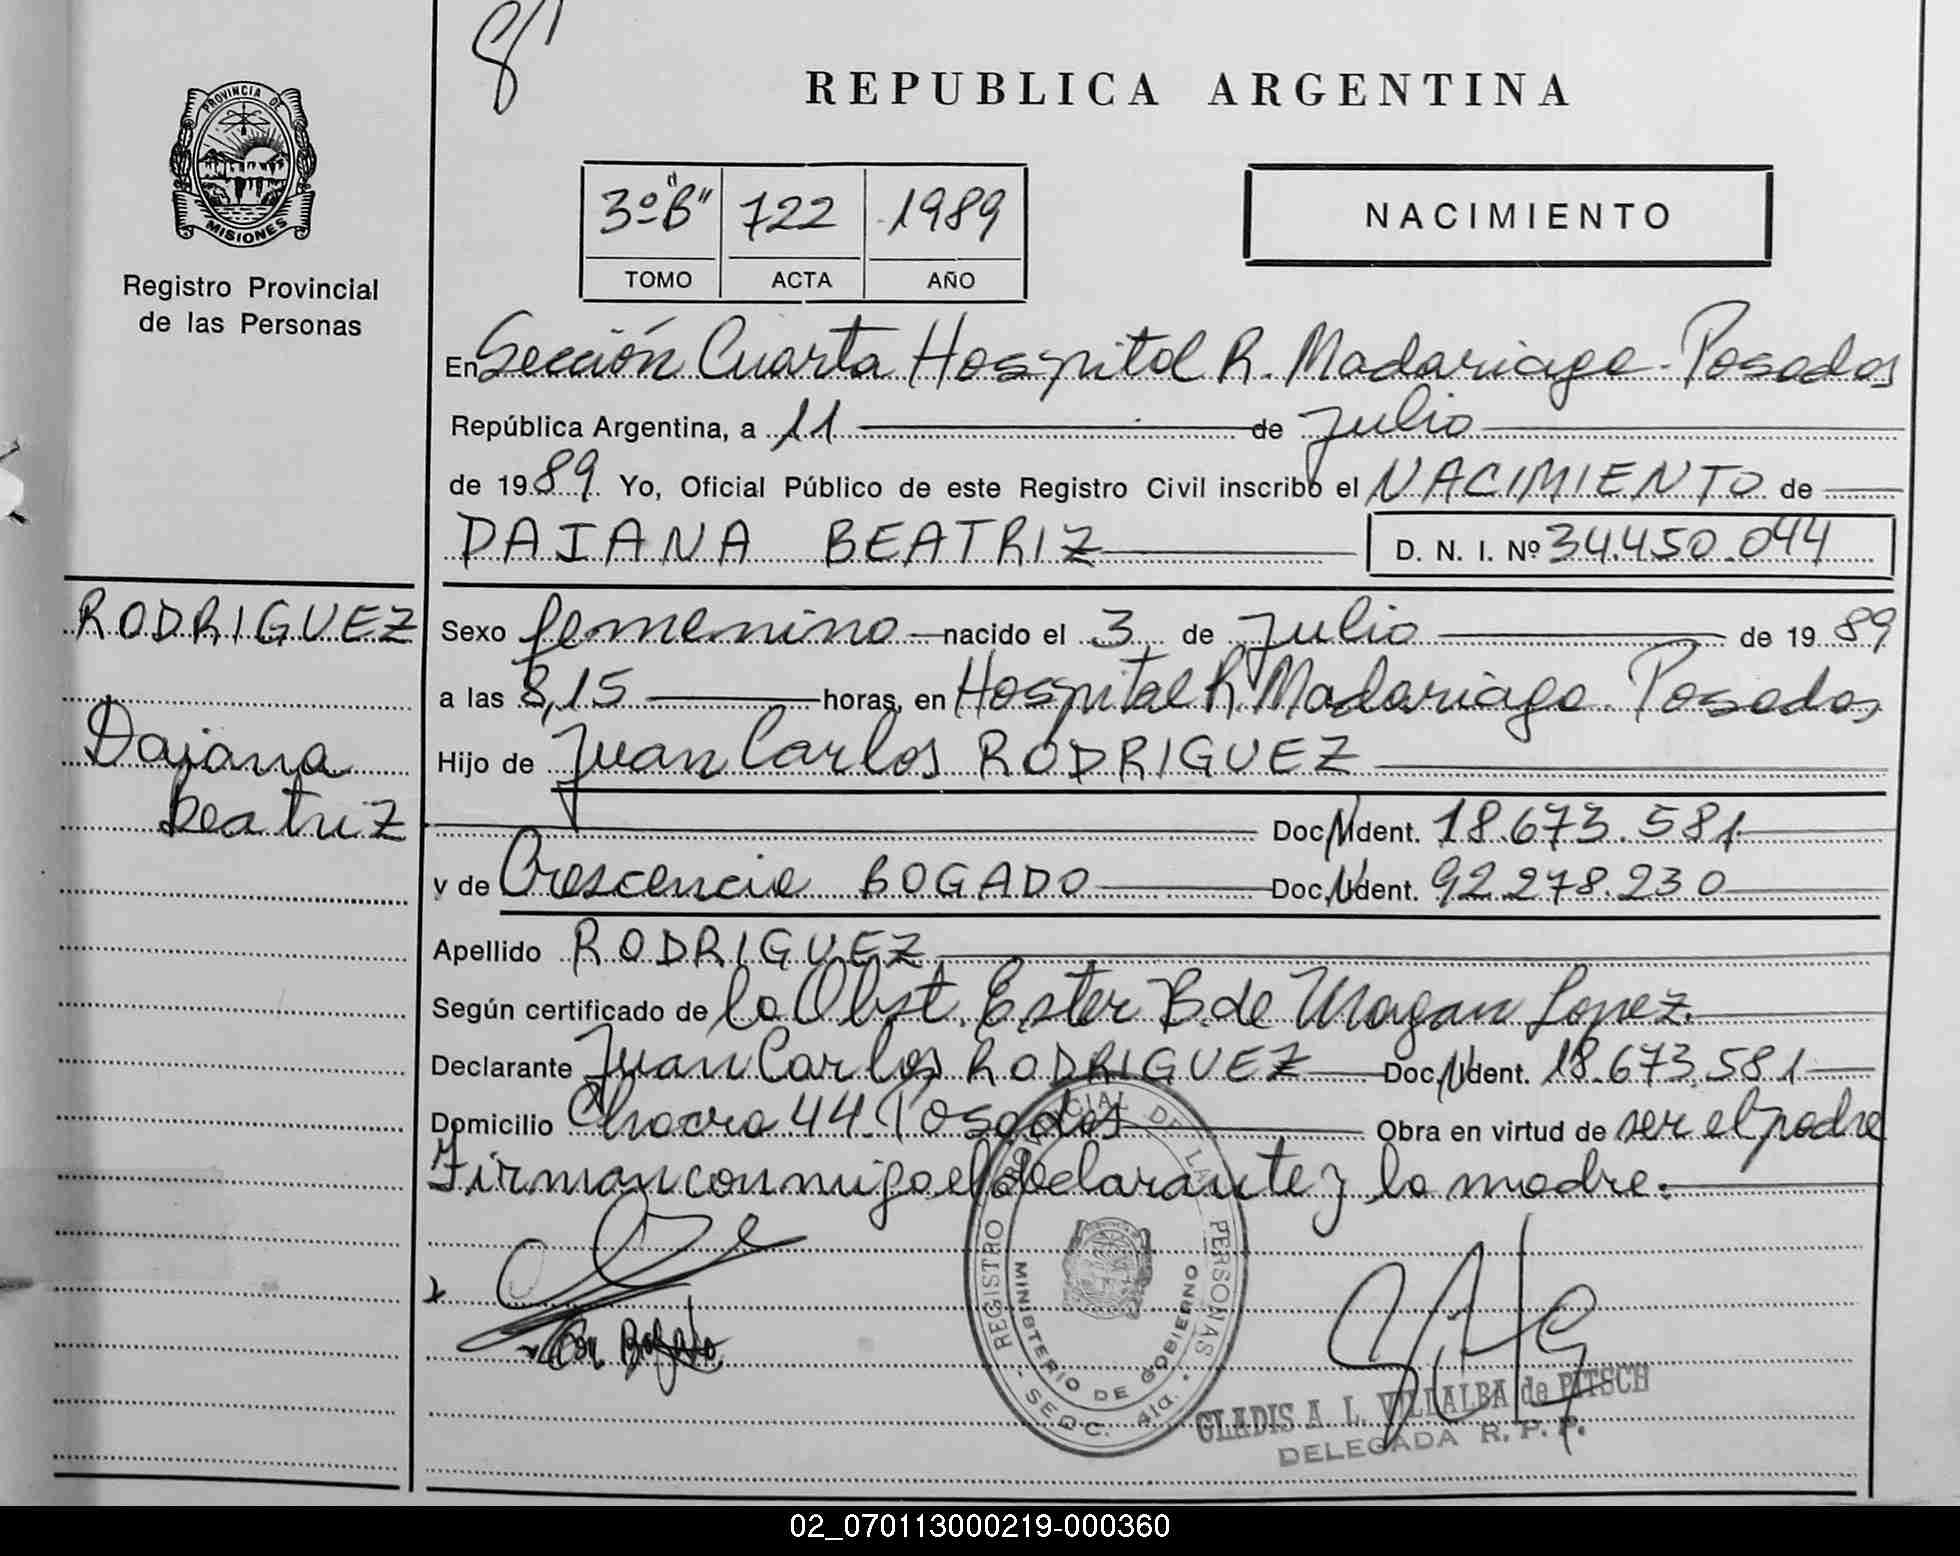 8
REPUBLICA ARGENTINA
PROVINCIA DE
MISIONES
Registro Provincial
de las Personas
3º"B" 722 1989
TOMO ACTA AÑO
NACIMIENTO
En Sección Cuarta Hospital R. Madariaga - Posadas
República Argentina, a 11 de Julio
de 1989. Yo, Oficial Público de este Registro Civil inscribo el NACIMIENTO de
DAIANA BEATRIZ D. N. I. Nº 34.450.044
RODRIGUEZ
Daiana
Beatriz
Sexo femenino nacido el 3 de Julio de 19 89
a las 8,15 horas, en Hospital R. Madariaga. Posadas
Hijo de Juan Carlos RODRIGUEZ
Doc. N. Ident. 18.673.581
y de Crescencia BOGADO Doc. N. Ident. 92.278.230
Apellido RODRIGUEZ
Según certificado de la Obst. Ester B. de Magan Lopez.
Declarante Juan Carlos RODRIGUEZ Doc. N. Ident. 18.673.581
Domicilio Chacra 44. Posadas Obra en virtud de ser el padre
Firman conmigo el declarante y la madre.
REGISTRO PROVINCIAL DE LAS PERSONAS
MINISTERIO DE GOBIERNO
SECC. 4ta.
GLADIS A. L. VILLALBA de PITSCH
DELEGADA R. P. P.
02_070113000219-000360